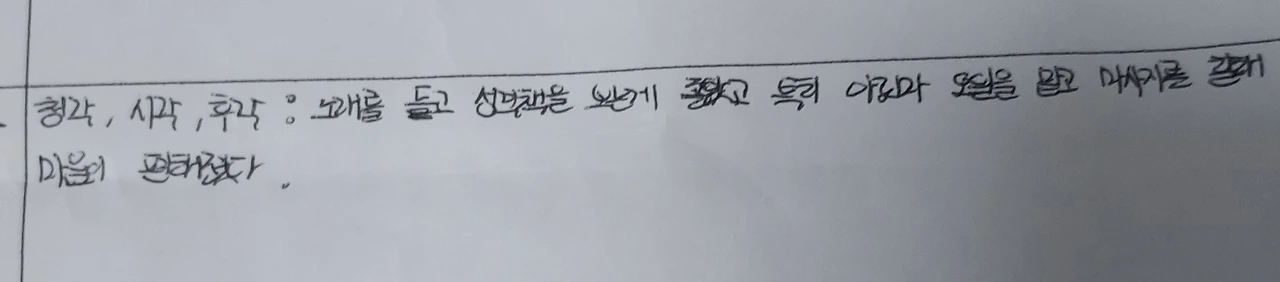 청각, 시각, 후각 : 노래를 듣고 성막책을 보는게 좋았고 특히 아로마 오일을 맡고 마사지를 할때
마음이 편해졌다.